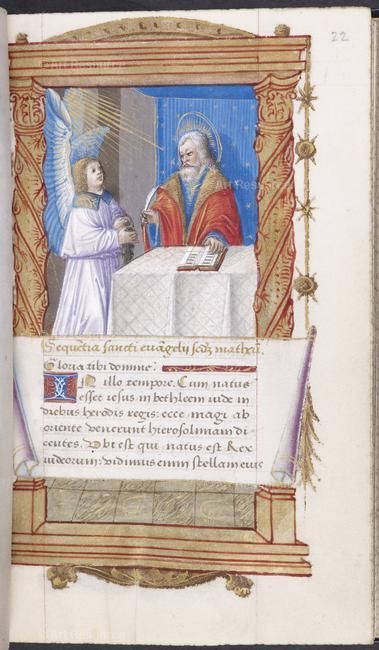 22
Sequentia sancti evangelij scdz matheu.
Gloria tibi domine:
IN illo tempore. Cum natus
esset iesus in bethleem iude in
diebus herodis regis: ecce magi ab
oriente venerunt hierosolimam di
centes. Ubi est qui natus est Rex
iudeorum: vidimus enim stellam eius
Art Resource